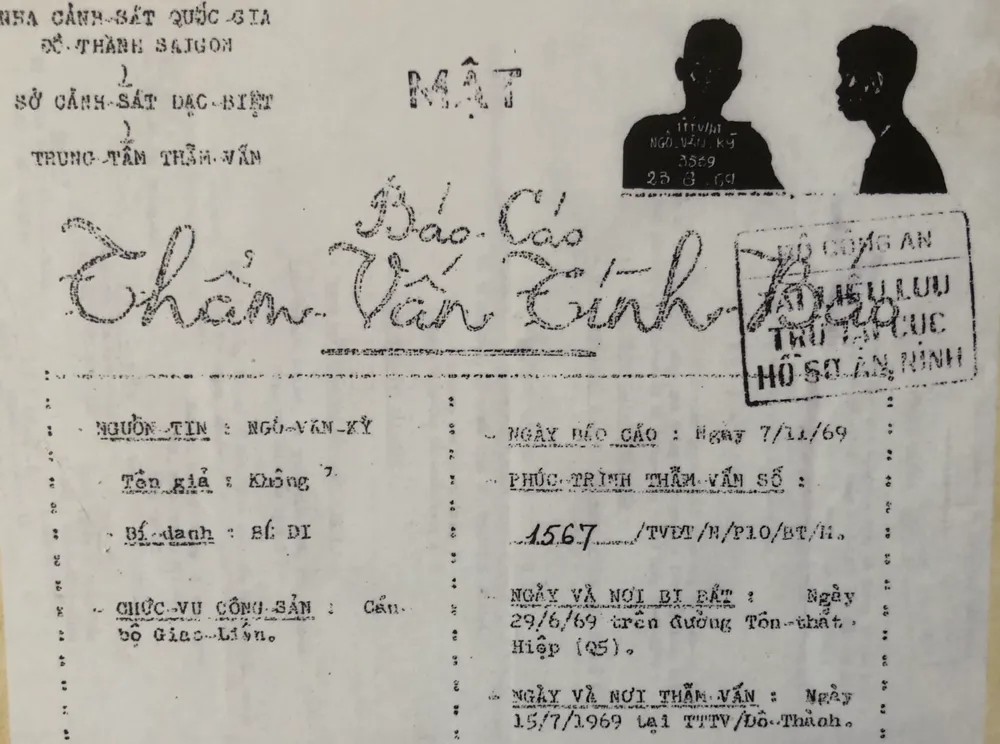 NHA CẢNH-SÁT QUỐC-GIA
ĐÔ-THÀNH SAIGON
SỞ CẢNH-SÁT ĐẶC-BIỆT
TRUNG-TÂM THẨM-VẤN
MẬT
TTTV/ĐT
NGÔ.VĂN.KỶ
3569
23 8 69
Báo-Cáo
Thẩm-Vấn Tình-Báo
BỘ CÔNG AN
TÀI LIỆU LƯU
TRỮ TẠI CỤC
HỒ SƠ AN NINH
- NGUỒN-TIN : NGÔ-VĂN-KỶ
Tên giả : Không
Bí-danh : BÉ DI
- CHỨC-VỤ CỘNG-SẢN : Cán-
bộ Giao-Liên.
- NGÀY BÁO CÁO : Ngày 7/11/69
- PHÚC-TRÌNH THẨM-VẤN SỐ :
1567/TVĐT/N/P10/BT/M.
- NGÀY VÀ NƠI BỊ BẮT : Ngày
29/6/69 trên đường Tôn-thất-
Hiệp (Q5).
- NGÀY VÀ NƠI THẨM-VẤN : Ngày
15/7/1969 tại TTTV/Đô-Thành.